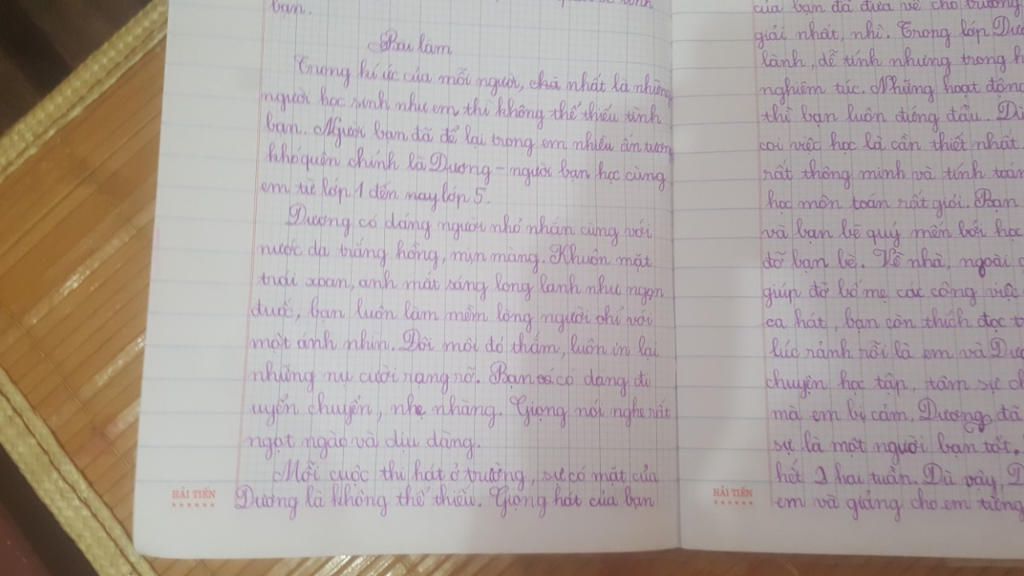 bạn.
Bài làm
Trong kí ức của mỗi người, chả nhất là những
người học sinh như em thì không thể thiếu tình
bạn. Người bạn đã để lại trong em nhiều ấn tượng
khó quên chính là Dương - người bạn học cùng
em từ lớp 1 đến nay lớp 5.
Dương có dáng người nhỏ nhắn cùng với
nước da trắng hồng, mịn màng. Khuôn mặt
trái xoan, anh mắt sáng long lanh như ngọn
đuốc, bạn luôn làm mềm lòng người chỉ với
một ánh nhìn. Đôi môi đỏ thắm, luôn in lại
những nụ cười rạng rỡ. Bạn có dáng đi
uyển chuyển, nhẹ nhàng. Giọng nói nghe rất
ngọt ngào và dịu dàng.
Mỗi cuộc thi hát ở trường, sự có mặt của
Dương là không thể thiếu. Giọng hát của bạn
HẢI TIẾN
của bạn đã đưa về cho trường
giải nhất, nhì. Trong lớp Dươ
lành, dễ tính nhưng trong h
nghiêm túc. Những hoạt động
thì bạn luôn đứng đầu. Dù
coi việc học là cần thiết nhất
rất thông minh và tính toán
học môn toán rất giỏi. Bạn
và bạn bè quý mến bởi học
đỡ bạn bè. Về nhà, ngoài
giúp đỡ bố mẹ các công việc
ca hát, bạn còn thích đọc t
lúc rảnh rỗi là em và Dươ
chuyện học tập, tâm sự ch
mà em bị cảm, Dương đã
sự là một người bạn tốt.
hết 2 hai tuần. Dù vậy, D
em và giảng cho em tiếng
HẢI TIẾN